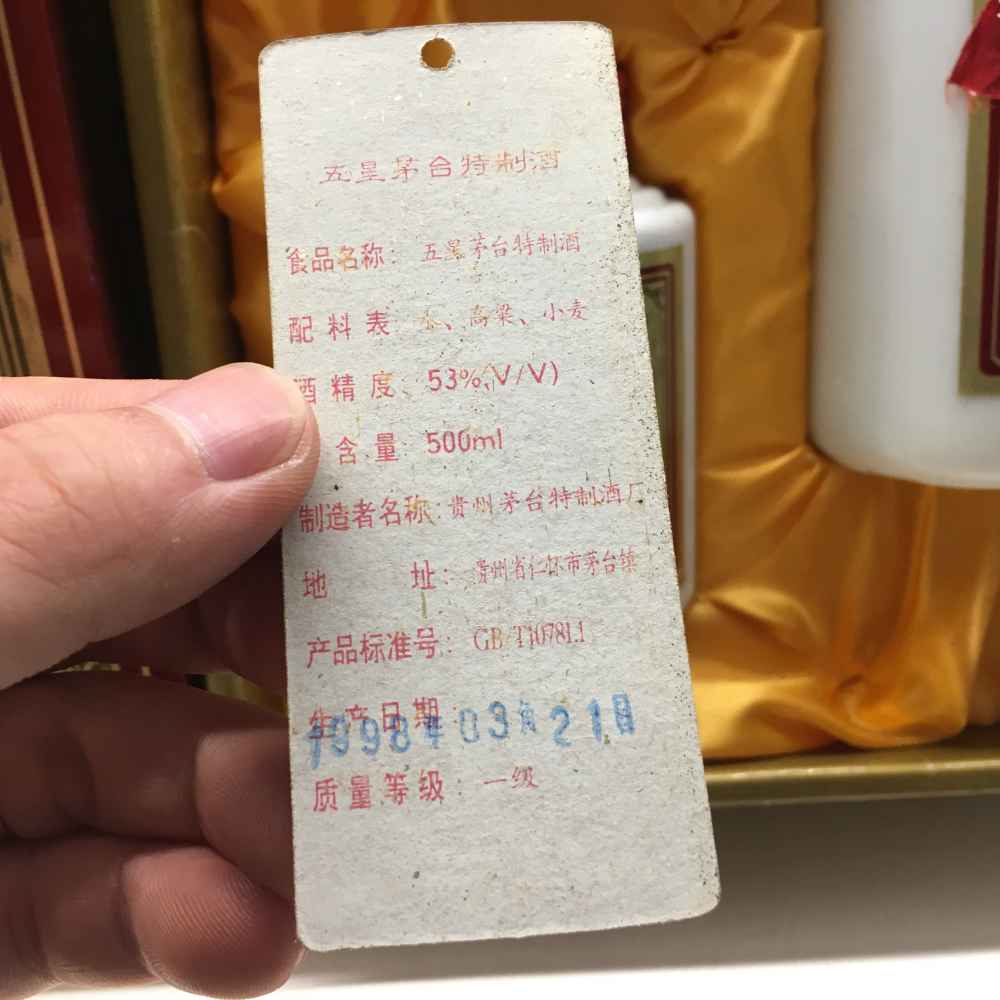 五星茅台特制酒
食品名称: 五星茅台特制酒
配料表: 水、高粱、小麦
酒精度: 53%(V/V)
含量: 500ml
制造者名称: 贵州茅台特制酒厂
地址: 贵州省仁怀市茅台镇
产品标准号: GB/T10781.1
生产日期
1998年03月21日
质量等级: 一级